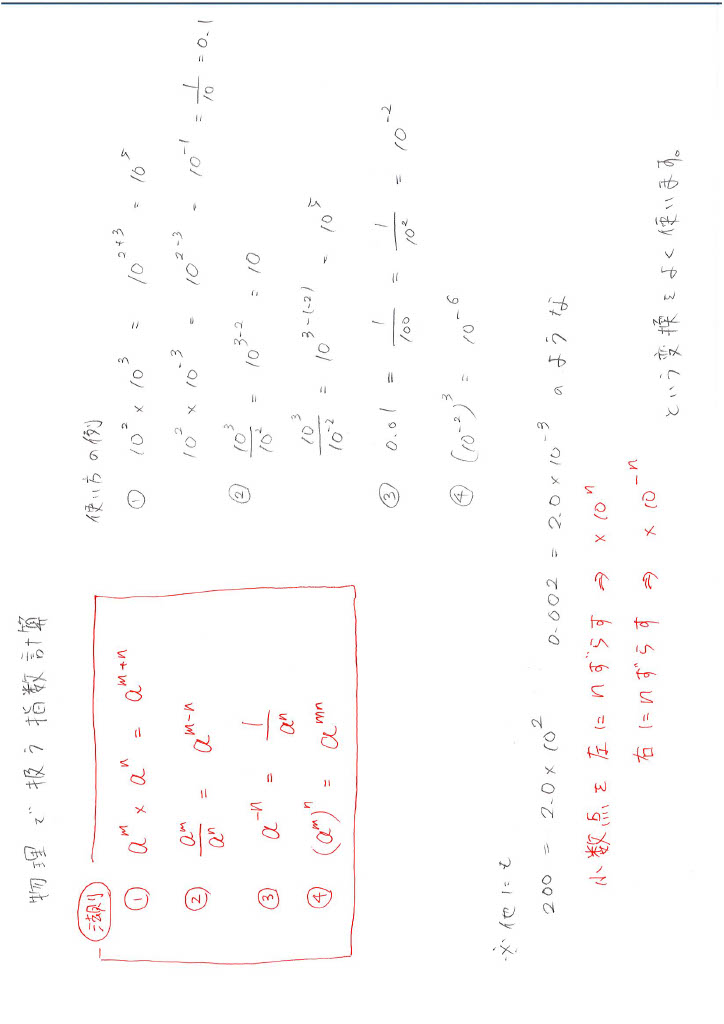 物理で扱う指数計算
法則
① a^m × a^n = a^{m+n}
② a^m/a^n = a^{m-n}
③ a^{-n} = 1/a^n
④ (a^m)^n = a^{mn}
使い方の例
① 10^2 × 10^3 = 10^{2+3} = 10^5
10^2 × 10^{-3} = 10^{2-3} = 10^{-1} = 1/10 = 0.1
② 10^3/10^2 = 10^{3-2} = 10
10^3/10^{-2} = 10^{3-(-2)} = 10^5
③ 0.01 = 1/100 = 1/10^2 = 10^{-2}
④ (10^{-2})^3 = 10^{-6}
※他にも
200 = 2.0×10^2 0.002 = 2.0×10^{-3} のような
小数点を左にnずらす ⇒ ×10^n
右にnずらす ⇒ ×10^{-n}
という変換をよく使います。